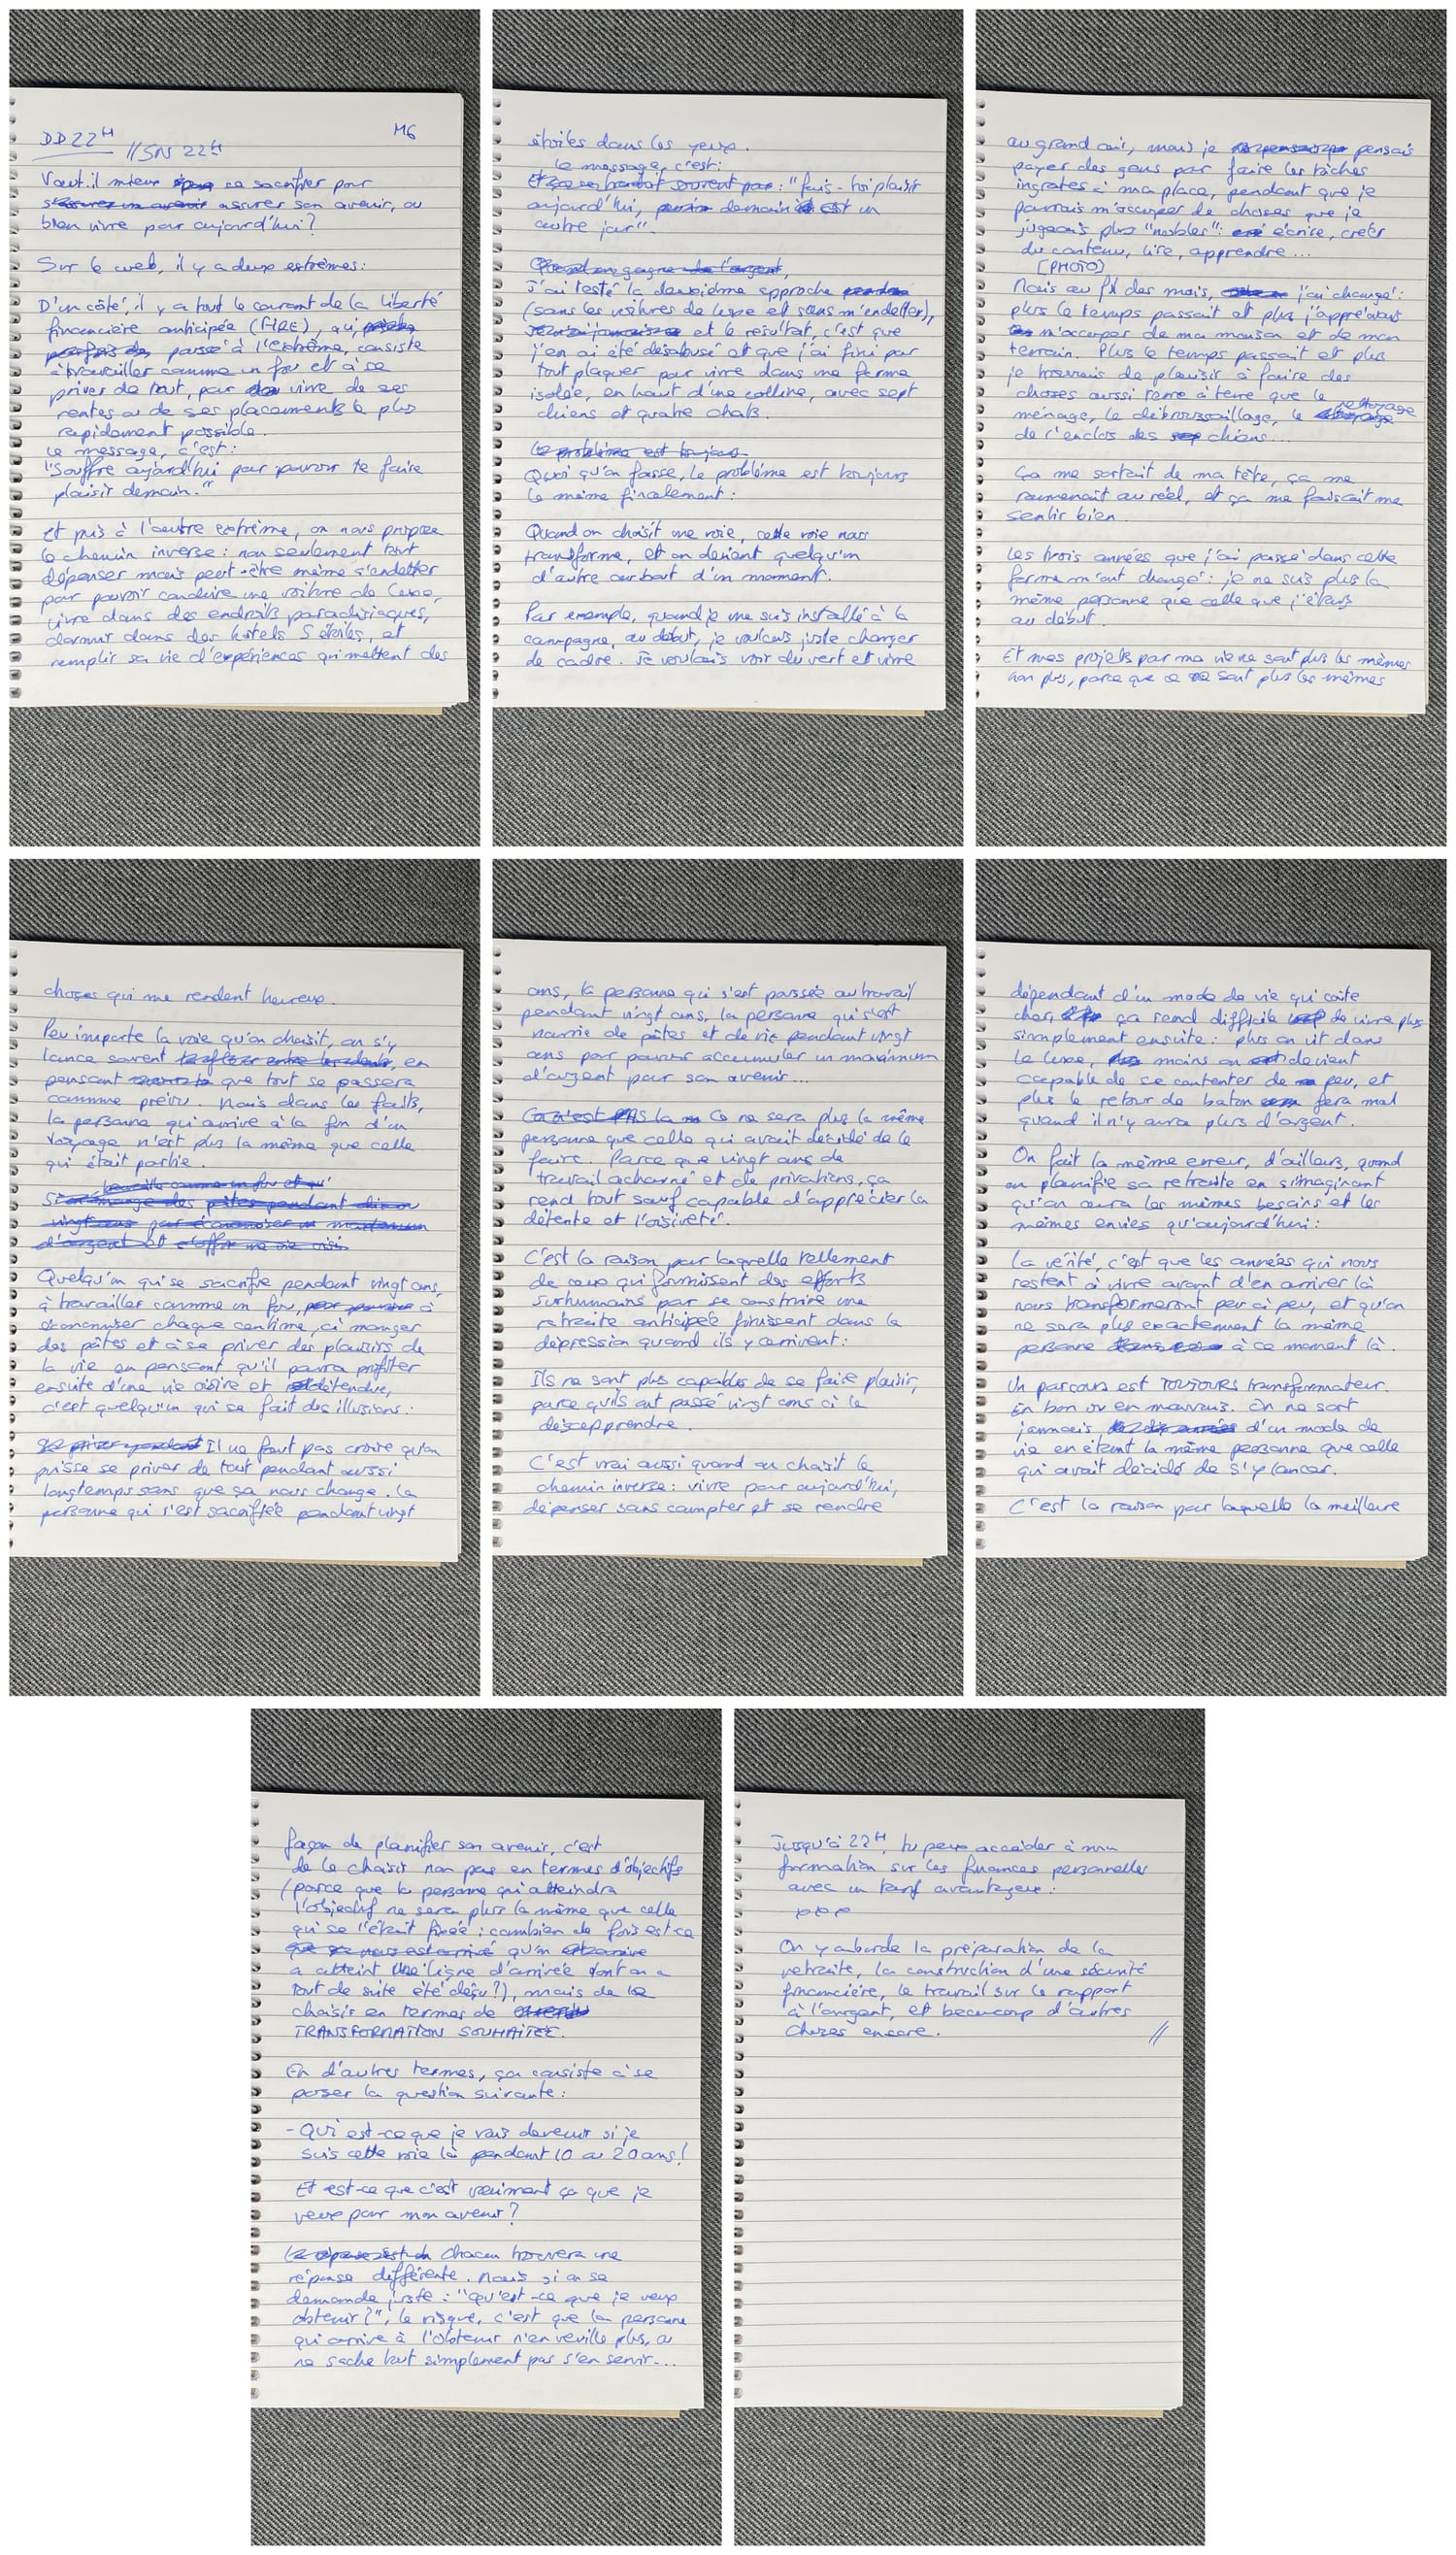 DD 22H
// SN 22H
M6
Vaut-il mieux se sacrifier pour
assurer son avenir, ou
bien vivre pour aujourd'hui?
Sur le web, il y a deux extrêmes:
D'un côté, il y a tout le courant de la liberté
financière anticipée (FIRE), qui,
passé à l'extrême, consiste
à travailler comme un fou et à se
priver de tout, pour vivre de ses
rentes ou de ses placements le plus
rapidement possible.
Le message, c'est:
"Souffre aujourd'hui pour pouvoir te faire
plaisir demain."
Et puis à l'autre extrême, on nous propose
le chemin inverse: non seulement tout
dépenser mais peut-être même s'endetter
pour pouvoir conduire une voiture de luxe,
vivre dans des endroits paradisiaques,
dormir dans des hôtels 5 étoiles, et
remplir sa vie d'expériences qui mettent des
étoiles dans les yeux.
Le message, c'est:
"fais-toi plaisir
aujourd'hui, demain est un
autre jour".
J'ai testé la deuxième approche
(sans les voitures de luxe et sans m'endetter),
et le résultat, c'est que
j'en ai été désabusé et que j'ai fini par
tout plaquer pour vivre dans une ferme
isolée, en haut d'une colline, avec sept
chiens et quatre chats.
Le problème est toujours
Quoi qu'on fasse, le problème est toujours
le même finalement:
Quand on choisit une voie, cette voie nous
transforme, et on devient quelqu'un
d'autre au bout d'un moment.
Par exemple, quand je me suis installé à la
campagne, au début, je voulais juste changer
de cadre. Je voulais voir du vert et vivre
au grand air, mais je pensais
payer des gens pour faire les tâches
ingrates à ma place, pendant que je
pourrais m'occuper de choses que je
jugeais plus "nobles": écrire, créer
du contenu, lire, apprendre...
[PHOTO]
Mais au fil des mois, j'ai changé:
plus le temps passait et plus j'appréciais
m'occuper de ma maison et de mon
terrain. Plus le temps passait et plus
je trouvais de plaisir à faire des
choses aussi terre à terre que le
ménage, le débroussaillage, le nettoyage
de l'enclos des chiens...
Ça me sortait de ma tête, ça me
ramenait au réel, et ça me faisait me
sentir bien.
Les trois années que j'ai passé dans cette
ferme m'ont changé: je ne suis plus la
même personne que celle que j'étais
au début.
Et mes projets pour ma vie ne sont plus les mêmes
non plus, parce que ce ne sont plus les mêmes
choses qui me rendent heureux.
Peu importe la voie qu'on choisit, on s'y
lance souvent en
pensant que tout se passera
comme prévu. Mais dans les faits,
la personne qui arrive à la fin d'un
voyage n'est plus la même que celle
qui était partie.
travaille comme un fou et qu'
Si on mange des pâtes pendant dix ou
vingt ans pour économiser un maximum
Quelqu'un qui se sacrifie pendant vingt ans,
à travailler comme un fou, à
économiser chaque centime, à manger
des pâtes et à se priver des plaisirs de
la vie en pensant qu'il pourra profiter
ensuite d'une vie oisive et détendue,
c'est quelqu'un qui se fait des illusions:
Il ne faut pas croire qu'on
puisse se priver de tout pendant aussi
longtemps sans que ça nous change. La
personne qui s'est sacrifiée pendant vingt
ans, la personne qui s'est poussée au travail
pendant vingt ans, la personne qui s'est
nourrie de pâtes et de riz pendant vingt
ans pour pouvoir accumuler un maximum
d'argent pour son avenir...
Ce ne sera plus la même
personne que celle qui avait décidé de le
faire. Parce que vingt ans de
travail acharné et de privations, ça
rend tout sauf capable d'apprécier la
détente et l'oisiveté.
C'est la raison pour laquelle tellement
de ceux qui fournissent des efforts
surhumains pour se construire une
retraite anticipée finissent dans la
dépression quand ils y arrivent:
Ils ne sont plus capables de se faire plaisir,
parce qu'ils ont passé vingt ans à le
désapprendre.
C'est vrai aussi quand on choisit le
chemin inverse: vivre pour aujourd'hui,
dépenser sans compter et se rendre
dépendant d'un mode de vie qui coûte
cher, ça rend difficile de vivre plus
simplement ensuite: plus on vit dans
le luxe, moins on devient
capable de se contenter de peu, et
plus le retour de baton fera mal
quand il n'y aura plus d'argent.
On fait la même erreur, d'ailleurs, quand
on planifie sa retraite en s'imaginant
qu'on aura les mêmes besoins et les
mêmes envies qu'aujourd'hui:
La vérité, c'est que les années qui nous
restent à vivre avant d'en arriver là
nous transformeront peu à peu, et qu'on
ne sera plus exactement la même
personne à ce moment là.
Un parcours est TOUJOURS transformateur.
En bon ou en mauvais. On ne sort
jamais d'un mode de
vie en étant la même personne que celle
qui avait décidé de s'y lancer.
C'est la raison pour laquelle la meilleure
façon de planifier son avenir, c'est
de le choisir non pas en termes d'objectifs
(parce que la personne qui atteindra
l'objectif ne sera plus la même que celle
qui se l'était fixée: combien de fois est-ce
qu'on
a atteint une ligne d'arrivée dont on a
tout de suite été déçu?), mais de le
choisir en termes de
TRANSFORMATION SOUHAITÉE.
En d'autres termes, ça consiste à se
poser la question suivante:
- Qui est-ce que je vais devenir si je
suis cette voie là pendant 10 ou 20 ans!
Et est-ce que c'est vraiment ça que je
veux pour mon avenir?
Chacun trouvera une
réponse différente. Mais si on se
demande juste: "qu'est-ce que je veux
obtenir?", le risque, c'est que la personne
qui arrive à l'obtenir n'en veuille plus, ou
ne sache tout simplement pas s'en servir...
Jusqu'à 22H, tu peux accéder à mon
formation sur les finances personnelles
avec un tarif avantageux:
xxx
On y aborde la préparation de la
retraite, la construction d'une sécurité
financière, le travail sur le rapport
à l'argent, et beaucoup d'autres
choses encore. //